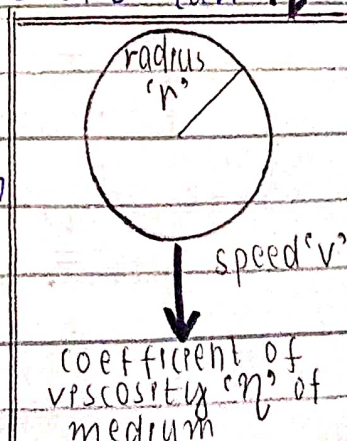 radius
'r'
speed 'v'
coefficient of
viscosity 'η' of
medium